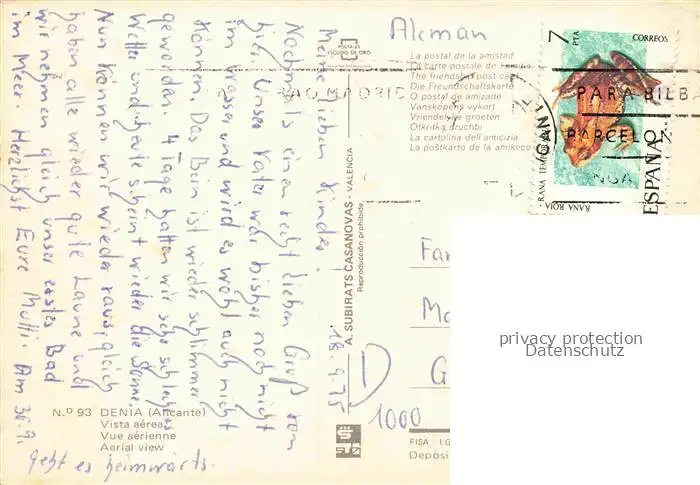 Aleman
7 PTA
CORREOS
PARA BILBA
BARCELO
NGA
RANA TEMPORARIA
RANA ROJA
ESPAÑA
MADRID
POSTALES
ESCUDO DE ORO
La postal de la amistad
La carte postale de l'amitié
The friendship post card
Die Freundschaftskarte
O postal de amizade
Vanskopens vykort
Vriendelijke groeten
Otkritka druchbi
La cartolina dell'amicizia
La poŝtkarto de la amikeco
A. SUBIRATS CASANOVAS - VALENCIA
Reproducción prohibida
18.9.75
Meine lieben Kinder.
Nochmals einen recht lieben Gruß von
hier. Unser Vater war bisher noch nicht
im Wasser und wird es wohl auch nicht
können. Das Bein ist wieder schlimmer
geworden. 4 Tage hatten wir sehr schlechtes
Wetter und heute scheint wieder die Sonne.
Nun können wir wieder raus, gleich
haben alle wieder gute Laune und
wir nehmen gleich unser erstes Bad
im Meer. Herzlichst Eure Mutti. Am 30.9.
geht es heimwärts.
D
1000
G
N.º 93 DENIA (Alicante)
Vista aérea
Vue aérienne
Aerial view
FISA I.G
Depósi
privacy protection
Datenschutz